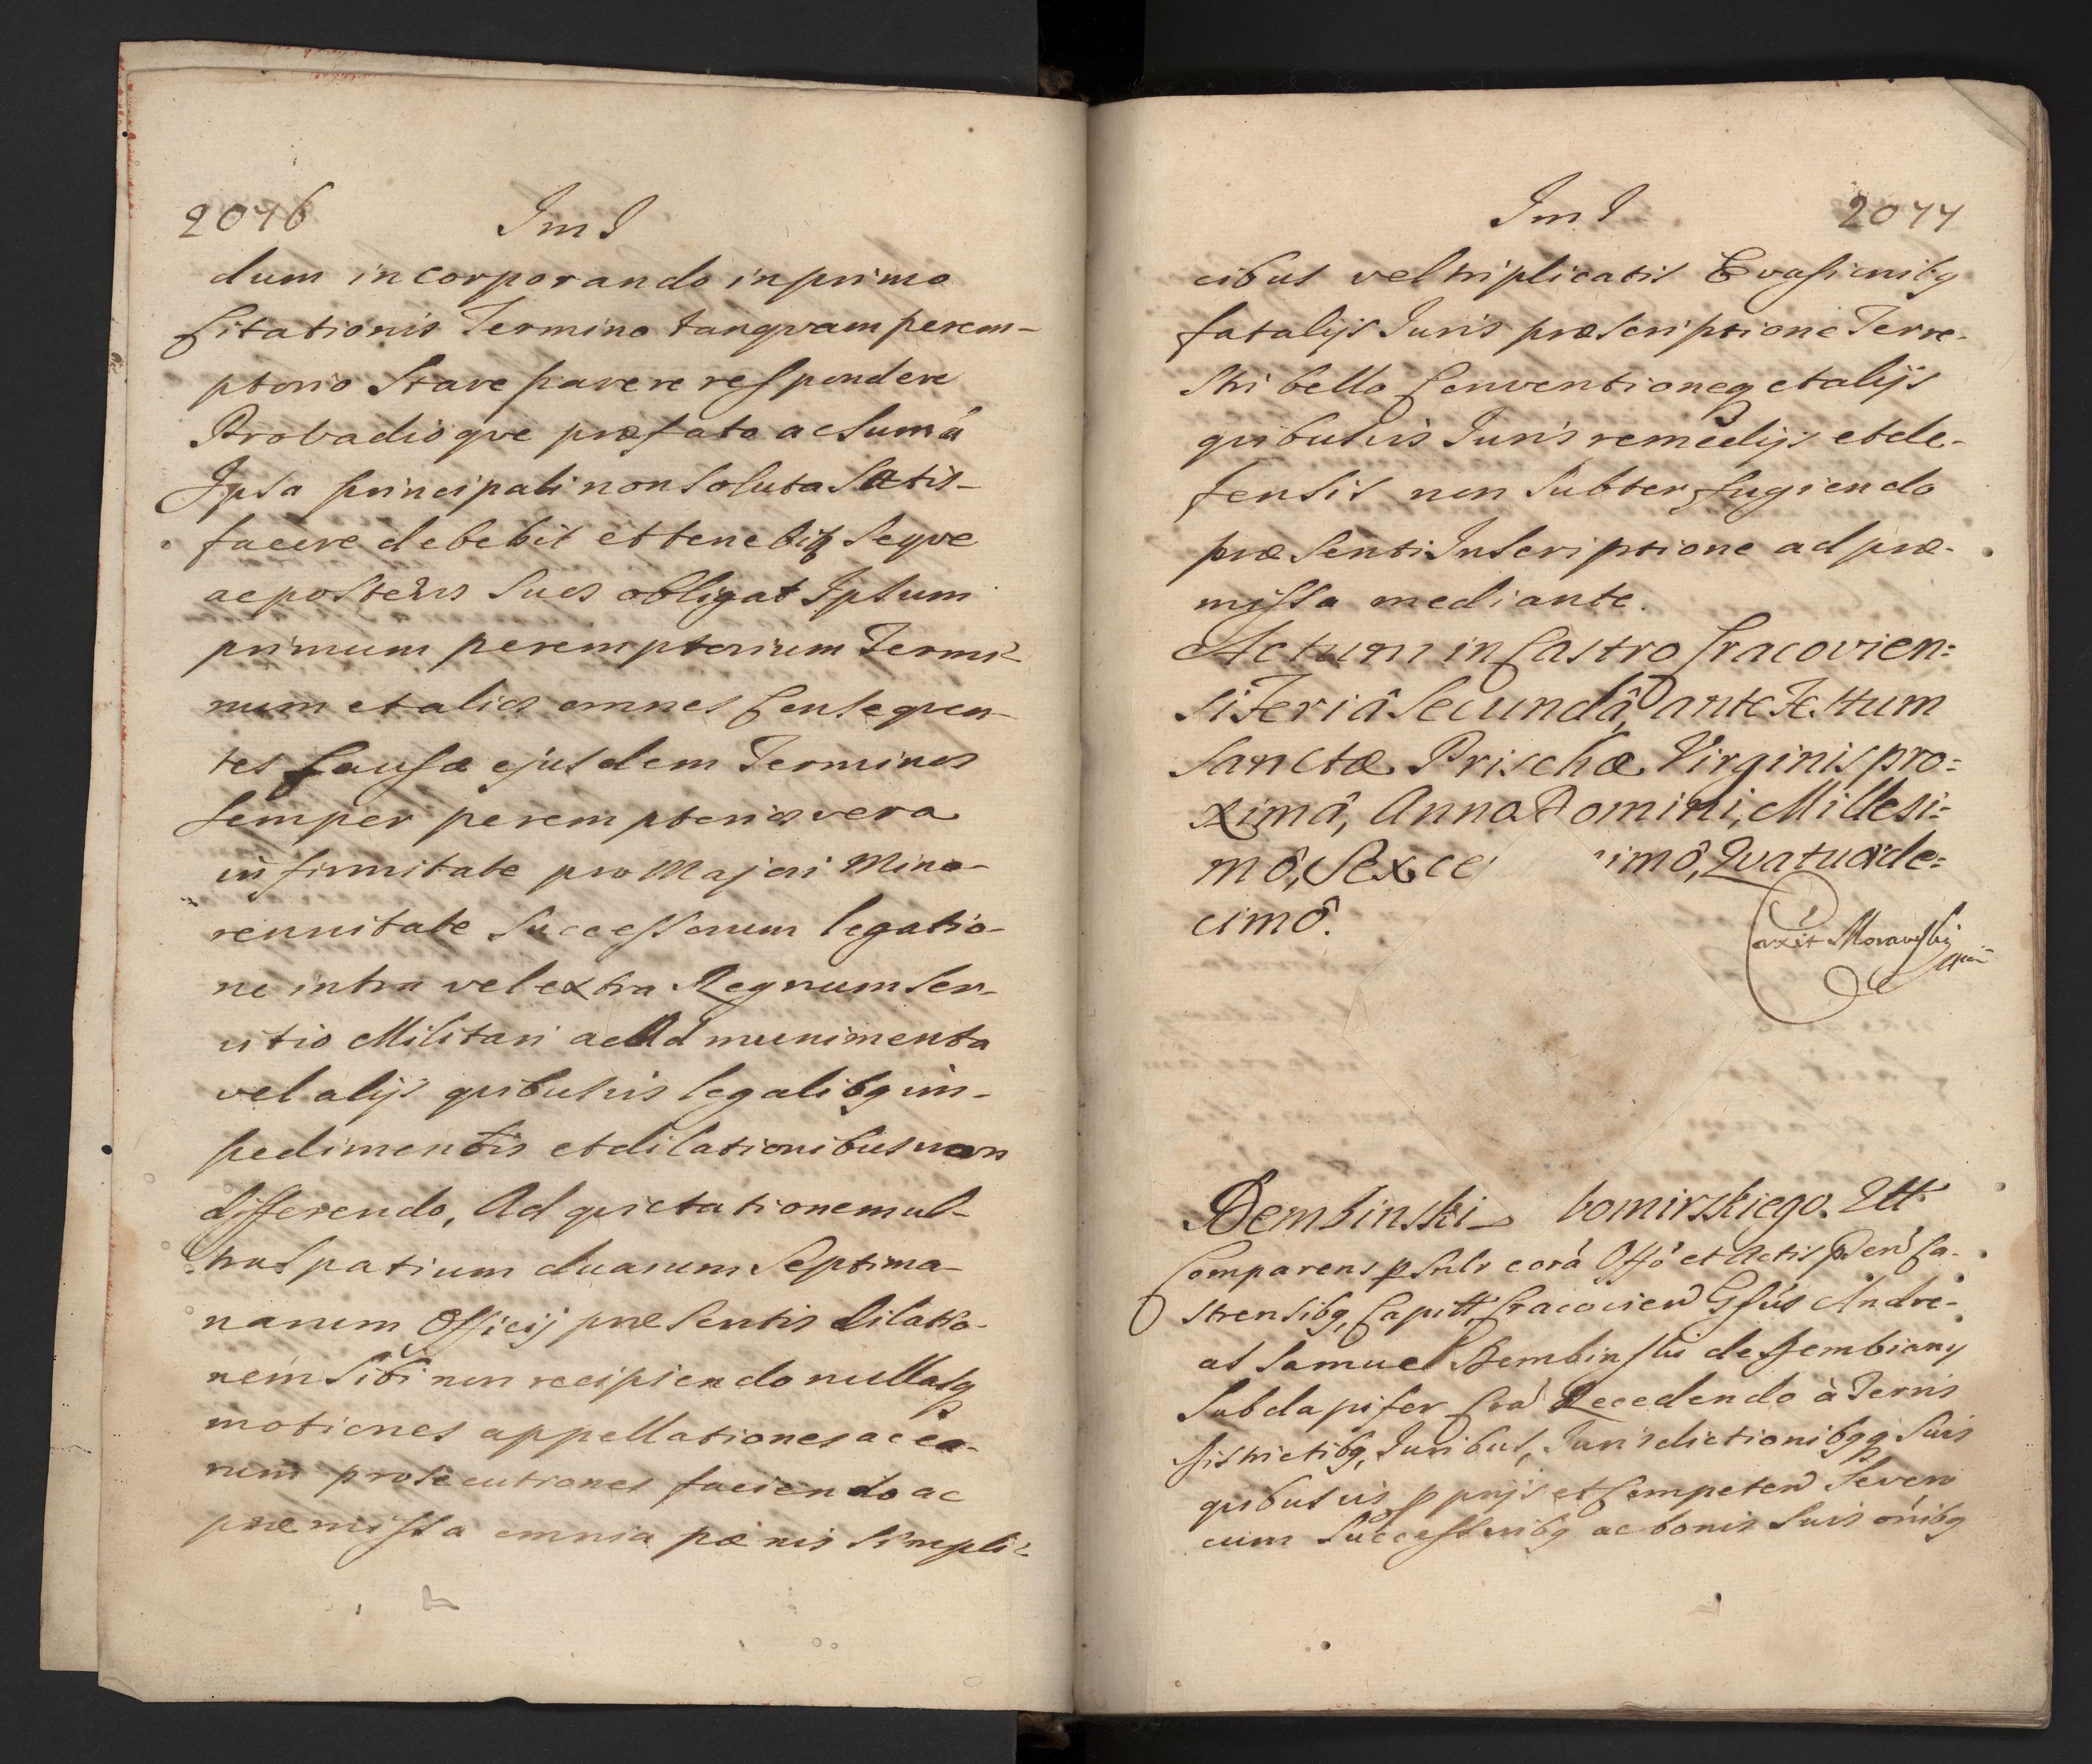 2076
Im I
dum incorporando in primo
Citationis Termino tanqvam perem-
ptorio Stare parere respondere
Probadioqve præfato ac Sumá
Ipsa principali non Soluta Satis-
facere debebit et tenebitq Seqve
ac posteris Suos obligat Ipsum
primum peremptorium Termi-
num et alios omnes Conseqven-
tes Causæ ejusdem Terminos
Semper peremptorios vera
infirmitate pro Majori Mino-
rennitate Successorum legatio-
ne intra vel extra Regnum Ser-
vitio Militari ac Ad munimenta
vel alijs qvibusvis legalibq im-
pedimentis et dilationibus non
differendo, Ad qvietationem ul-
tra Spatium duarum Septima-
narum Officij præsentis dilatio-
nem Sibi non recipiendo nullasq
motiones appellationes ac ea-
rum prosecutiones faciendo ac
præmissa omnia pænis Simpli-
Im I
2077
cibus vel triplicatis Evasionibq
fatalijs Juris præscriptione Terre-
Stri bello Conventioneq et alijs
qvibusvis Juris remedijs et de-
fensis non Subterfugiendo
præsenti Inscriptione ad præ-
missa mediante.
Actum in Castro Cracovien:
si Feriâ Secundâ, ante Festum
Sanctæ Prischæ Virginis pro:
ximâ, Anno Domini, Millesi:
mô, Sexce imô, Qvatuorde:
cimô.
Moravski
Dembinski bomirskiego. Ztt
Comparens psnlr corá Offó et Actis Pden Ca-
strensibq, Capitt Cracovien Gsus Andre-
as Samuel Dembinski de Dembiany
Subdapifer Cra Recedendo à Terris
Districtibq, Juribus, Jurisdictionibqq Suis
qvibusvis pprijs et Competen Severo
cum Successoribq ac bonis Suis oníbq